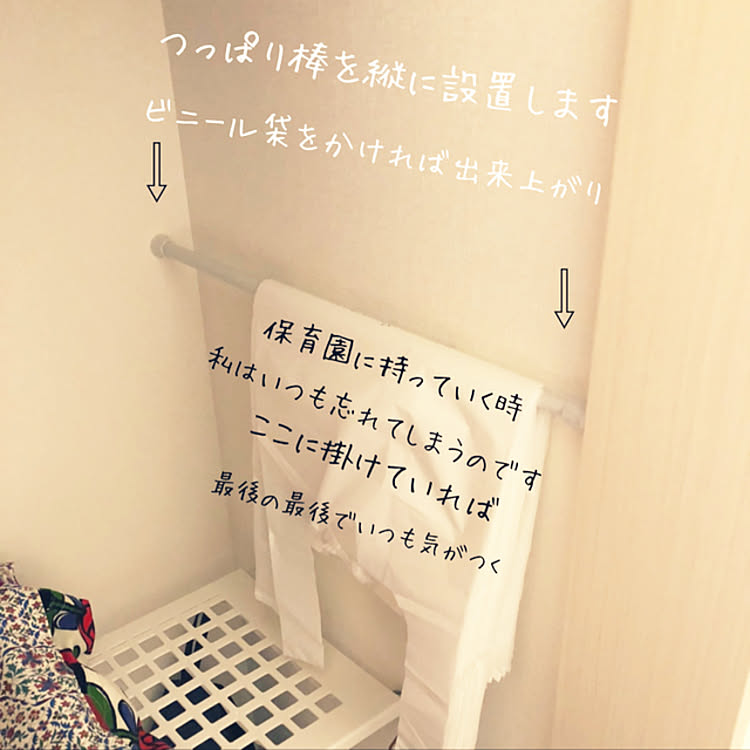 つっぱり棒を縦に設置します
ビニール袋をかければ出来上がり
保育園に持っていく時
私はいつも忘れてしまうのです
ここに掛けていれば
最後の最後でいつも気がつく